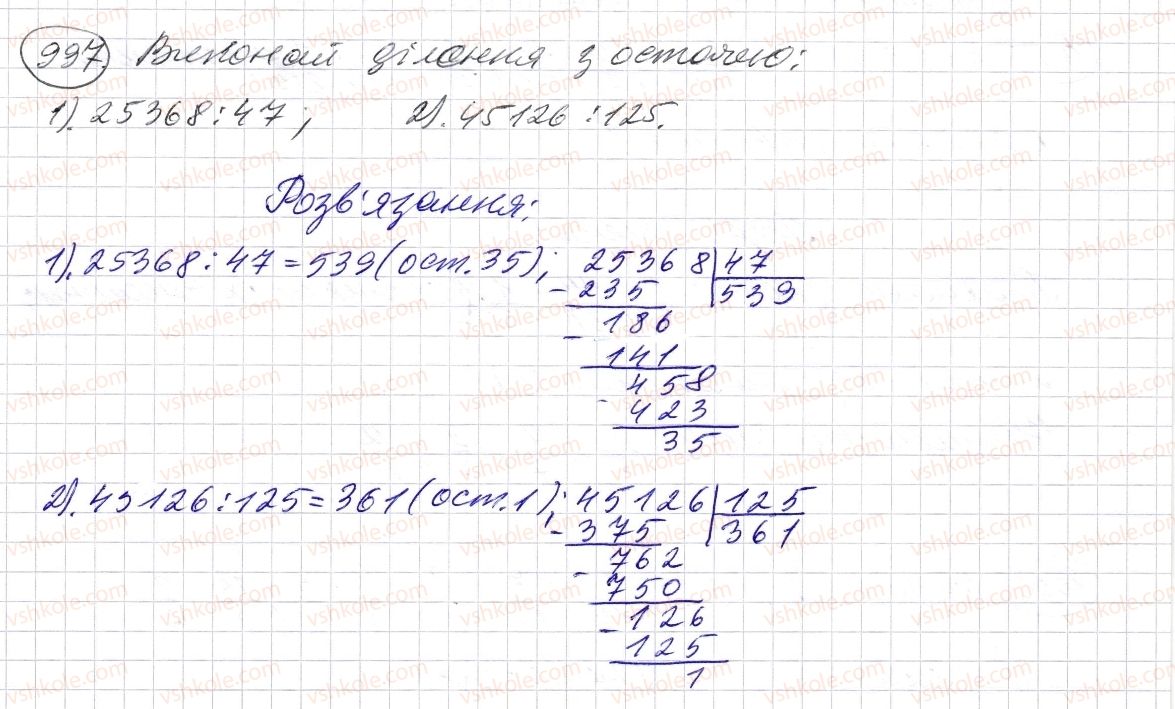 997 Виконай ділення з остачею:
1). 25368:47; 2). 45126:125.
Розв'язання:
1). 25368:47=539(ост.35); 25368 | 47
- 235 539
- 186
141
- 458
423
35
2). 45126:125=361(ост.1); 45126 | 125
- 375 361
- 762
750
- 126
125
1
vshkole.com